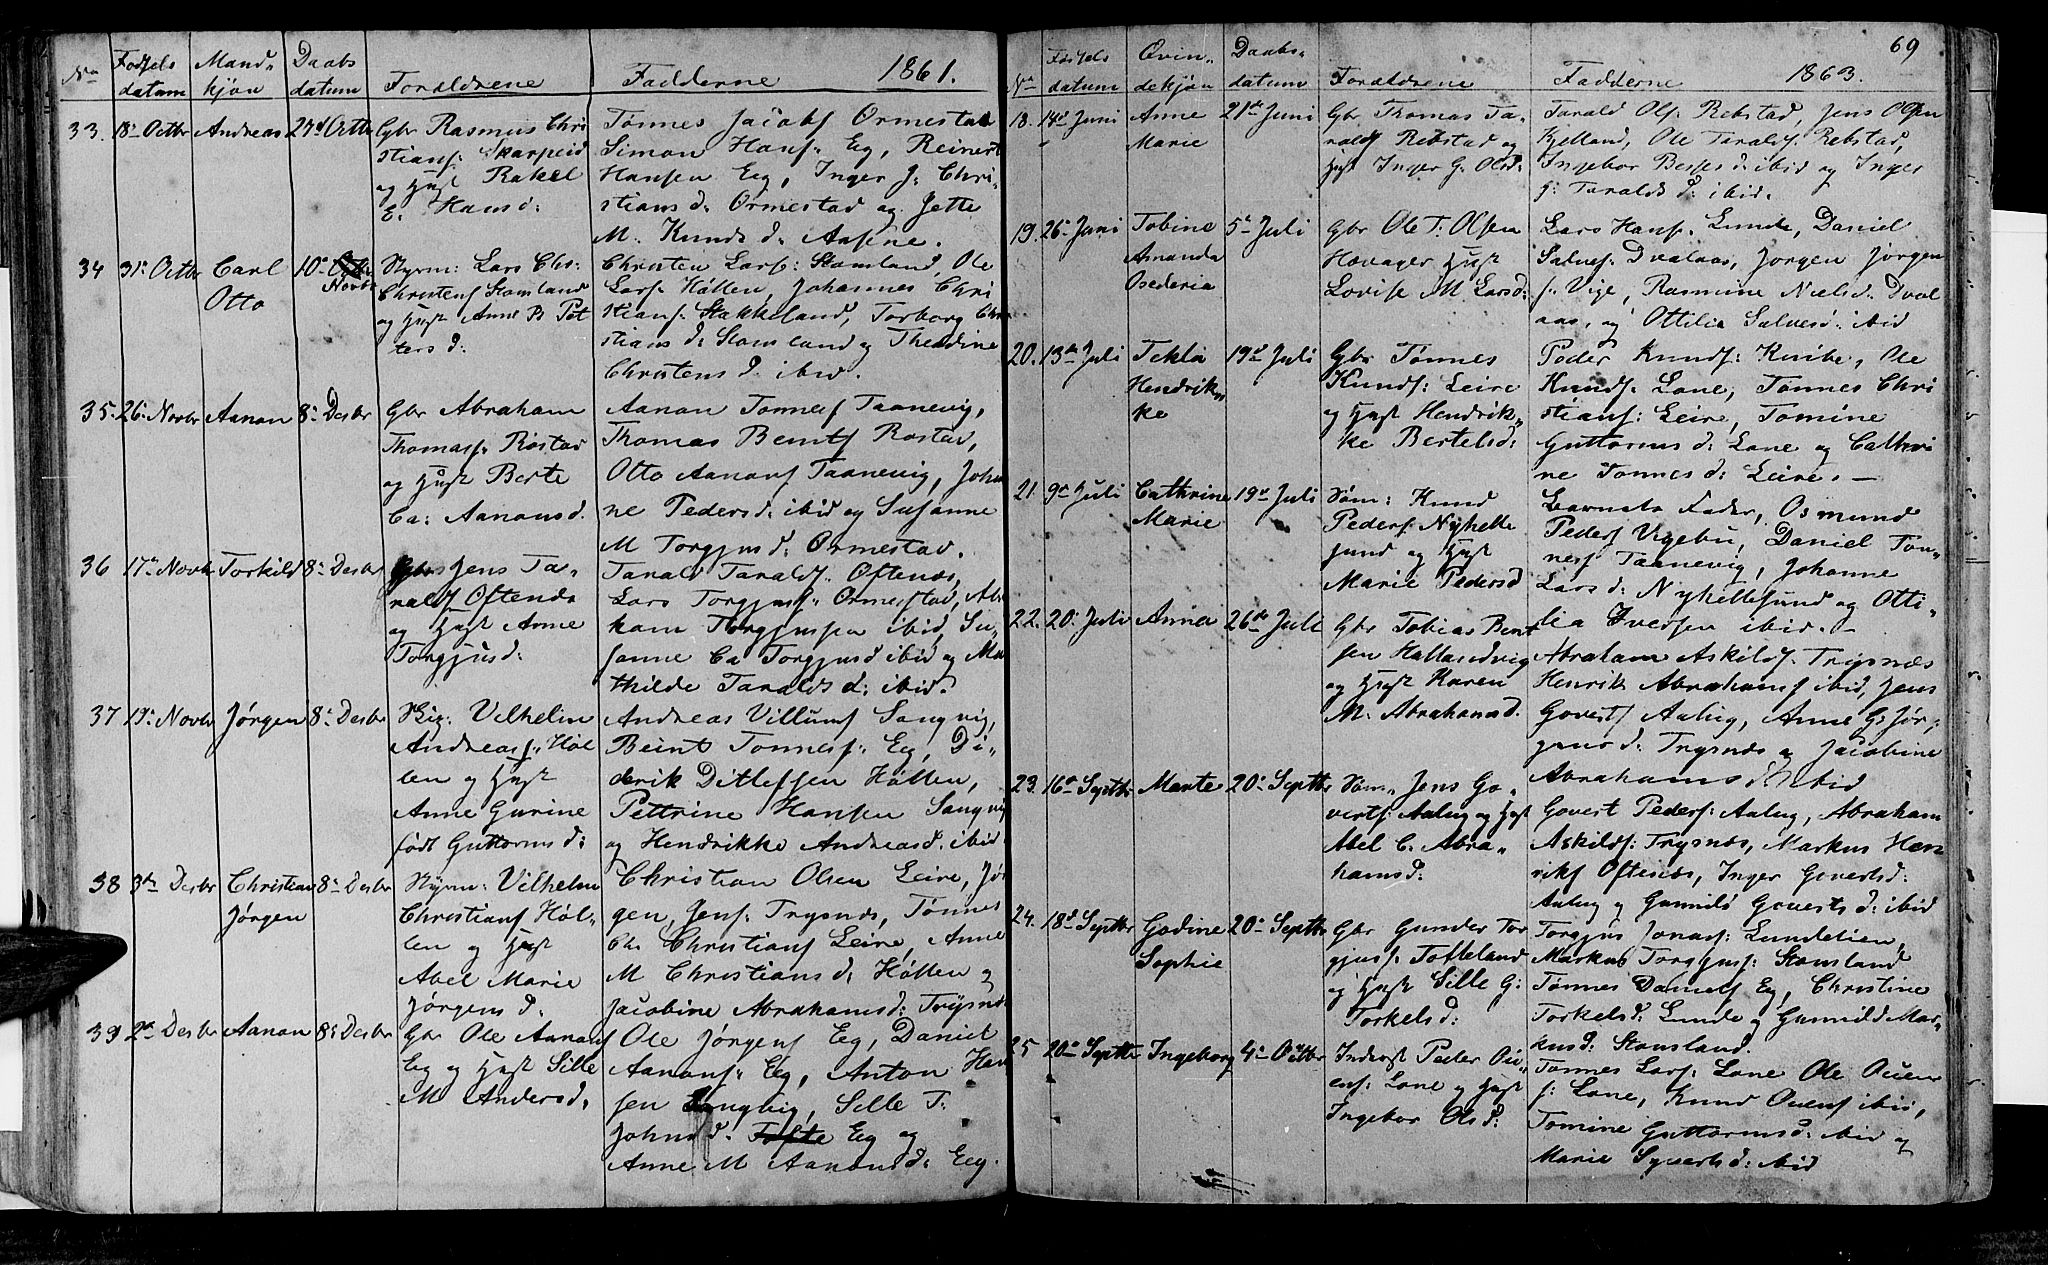 No Fødsels datum Mandkjøn Daabs datum Forældrene Fadderne 1861.
33. 18de Octbr Andreas 27de Octbr
Gbr Rasmus Chri
stians: Skarpeid
og Hust Rakel
E. Hansd:
Tønnes Jacobs Ormestad
Simon Hans: Eg, Reinert
Hansen Eeg, Inger J: Chri-
stians d: Ormestad og Jette
M. Knuds d: Aasene.
34 31te Octbr Carl
Otto 10de Novbr
Styrm: Lars Chr:
Christens Stomland
og Hust Anne B Pet
ters d:
Christen Lars: Stomland, Ole
Lars: Høllen, Johannes Chri
stians: Stakkeland, Torborg Chri
stians d: Stomland og Theodine
Christens d. ibid.
35. 26: Novbr Aanon 8: Desbr
Gbr Abraham
Thomas: Røstad
og Hust Berte
Ca: Aanonsd.
Aanon Tønnes Taanevig,
Thomas Bents Røstad,
Otto Aanons Taanevig, Johan
ne Peders d: ibid og Susanne
M Torgjus d: Ormestad.
36 17de Novbr Torkild 8: Desbr
Gbr Jens Ta-
ralds Oftenæs
og Hust Anne
Torgjusd:
Tarald Taralds: Oftenæs,
Lars Torgjus: Ormestad, Abr
ham Torgjusen ibid, Su-
sanne Ca Torgjusd ibid og Ma
thilde Taralds d: ibid.
37 19: Novbr Jørgen 8: Desbr
Vilhelm
Andreas: Høl
len og Hust
Anne Gurine
født Guttorms d:
Andreas Villums Sangvig,
Beint Tønnes: Eg, Di-
derik Ditlefsen Høllen,
Pettrine Hansen Sangvig
og Hendrikke Andreasd. ibid
38 3de Desbr Christian
Jørgen 8: Desbr
Styrm: Vilhelm
Christians Høl-
len og Hust
Abel Marie
Jørgens d.
Christian Olsen Leire, Jør
gen, Jens: Trysnæs, Tønnes
Chr Christians Leire, Anne
M Christians d: Høllen og
Jacobine Abrahams d: Trysnæs
39 2de Desbr Aanon 8: Desbr
Gbr Ole Aanons
Eeg og Hust Sille
M Anders d.
Ole Jørgens Eg, Daniel
Aanons: Eg, Anton Han
sen Sangvig, Sille T:
Johns d. Eeg og
Anne M Aanons d: Eeg.
69
No Fødsels datum Qvindekjøn Daabs datum Forældrene Fadderne 1863.
18. 14de Juni Anne
Marie 21de Juni
Gbr Thomas Ta-
ralds Rebstad og
Hust Inger G. Olsd:
Tarald Ols: Rebstad, Jens Olsen
Kjelland, Ole Taralds: Rebstad,
Ingebor Bessesd: ibid og Inger
J: Taralds d: ibid.
19. 26: Juni Tobine
Amanda
Osederia 5te Juli
Gbr Ole T. Olsen
Havager Hust
Lovise M. Larsd:
Lars Hans: Lunde, Daniel
Salves: Dvalaas, Jørgen Jørgen
s: Vige, Rasmine Nielsd: Dval
aas, og Ottilia Salvesd: ibid
20. 13de Juli Tekla
Hendrik
ke 19de Juli
Gbr Tønnes
Knuds: Leire
og Hust Hendrik-
ke Bertelsd:
Peder Knuds: Knibe, Ole
Knuds: Lane, Tønnes Chri
stians: Leire, Tomine
Guttorms d: Lane og Cathri
ne Tønnes d: Leire. —
21. 9de Juli Cathrine
Marie 19de Juli
Søm: Knud
Peders: Nyhelle
sund og Hust
Marie Pedersd
Barnets Fader, Osmund
Peders Vigebu, Daniel Tøn-
nes: Taanevig, Johanne
Lars d: Nyhellesund og Otti-
lia Iversen ibid. —
22. 20. Juli Anna 26de Juli
Gbr Tobias Bent
sen Hallandvig
og Hust Karen
M. Abrahamsd.
Abraham Askilds: Trysnæs
Henrik Abrahams ibid, Jens
Goverts: Aalug, Anne G: Jør-
gens d: Trysnæs og Jacobine
Abrahams d: ibid
23. 16de Septbr Marte 20: Septbr
Søm: Jens Go-
verts: Aalug og Hust
Abel C. Abra-
hamsd:
Govert Peders: Aalug, Abraham
Askilds: Trysnæs, Markus Hen
riks Oftenæs, Inger Govertsd:
Aalug og Gunnild Goverts d: ibid
24. 18de Septbr Godine
Sophie 20: Septbr
Gbr Gunder Tor
gjus: Tofteland
og Hust Sille G:
Torkelsd:
Torgjus Jonas: Lundelien,
Markus Torgjus: Stomland
Tønnes Daniels Eg, Christine
Torkelsd: Lunde og Gunnild Mar-
kusd: Stomland.
25 20de Septbr Ingeborg 4: Octbr
Inderst Peder Ou-
ens: Lane og Hust
Ingebor Ols d:
Tønnes Lars: Lane Ole Ouen
s: Lane, Knud Ouens ibid,
Tomine Guttormsd: ibid og
Marie Syverts d: ibid